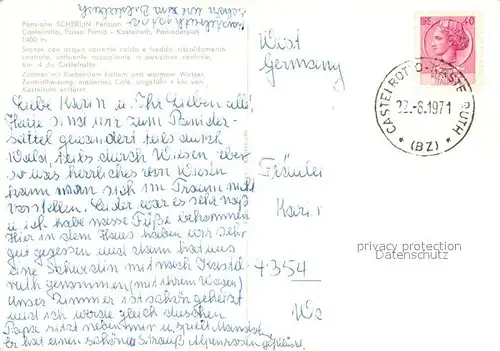 schon wie ein Bilderbuch
Pensione SCHERLIN Pension
Castelrotto, Passo Pamid - Kastelruth, Panidersattel
1400 m
Stanze con acqua corrente calda e fredda, riscaldamento
centrale, ottimente accogliente in pensione centrale.
Km. 4 da Castelrotto
Zimmer mit fließendem kaltem und warmem Wasser,
Zentralheizung, modernes Café, ungefähr 4 km von
Kastelruth entfernt
Liebe Karin u. Ihr Lieben alle,
Heute sind wir zum Panider-
sattel gewandert teils durch
Wald, teils durch Wiesen, aber
so was herrliches von Wiesen
kann man sich im Traum nicht
vorstellen. Leider war es sehr naß
u. ich habe nasse Füße bekommen
Hier in dem Haus haben wir sehr
gut gegessen und dann hat uns
eine mit nach Kastel-
ruth genommen (mit ihrem Wagen)
Unser Zimmer ist schön geheizt
und ich werde gleich duschen
Papa sitzt neben mir u.
Er hat einen schönen Strauß Alpenrosen gepflückt.
West
Germany
Fräulein
Karin
4354
We
IRE 40
CASTELROTTO-KASTELRUTH
22.-6.1971
* (BZ) *
privacy protection
Veröffentlichung